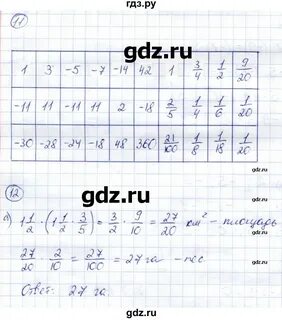 gdz.ru
11
gdz.ru
1 3 -5 -7 -14 42 1 3/4 1/2 9/20
-11 11 -11 11 2 -18 2/5 1/4 1/6 1/20
-30 -28 -24 -18 48 360 21/100 1/8 1/18 1/20
gdz.ru
12
а) 1 1/2 · (1 1/2 · 3/5) = 3/2 · 9/10 = 27/20 км² - площадь
27/20 · 2/10 = 27/100 = 27 га - лес
Ответ: 27 га
gdz.ru